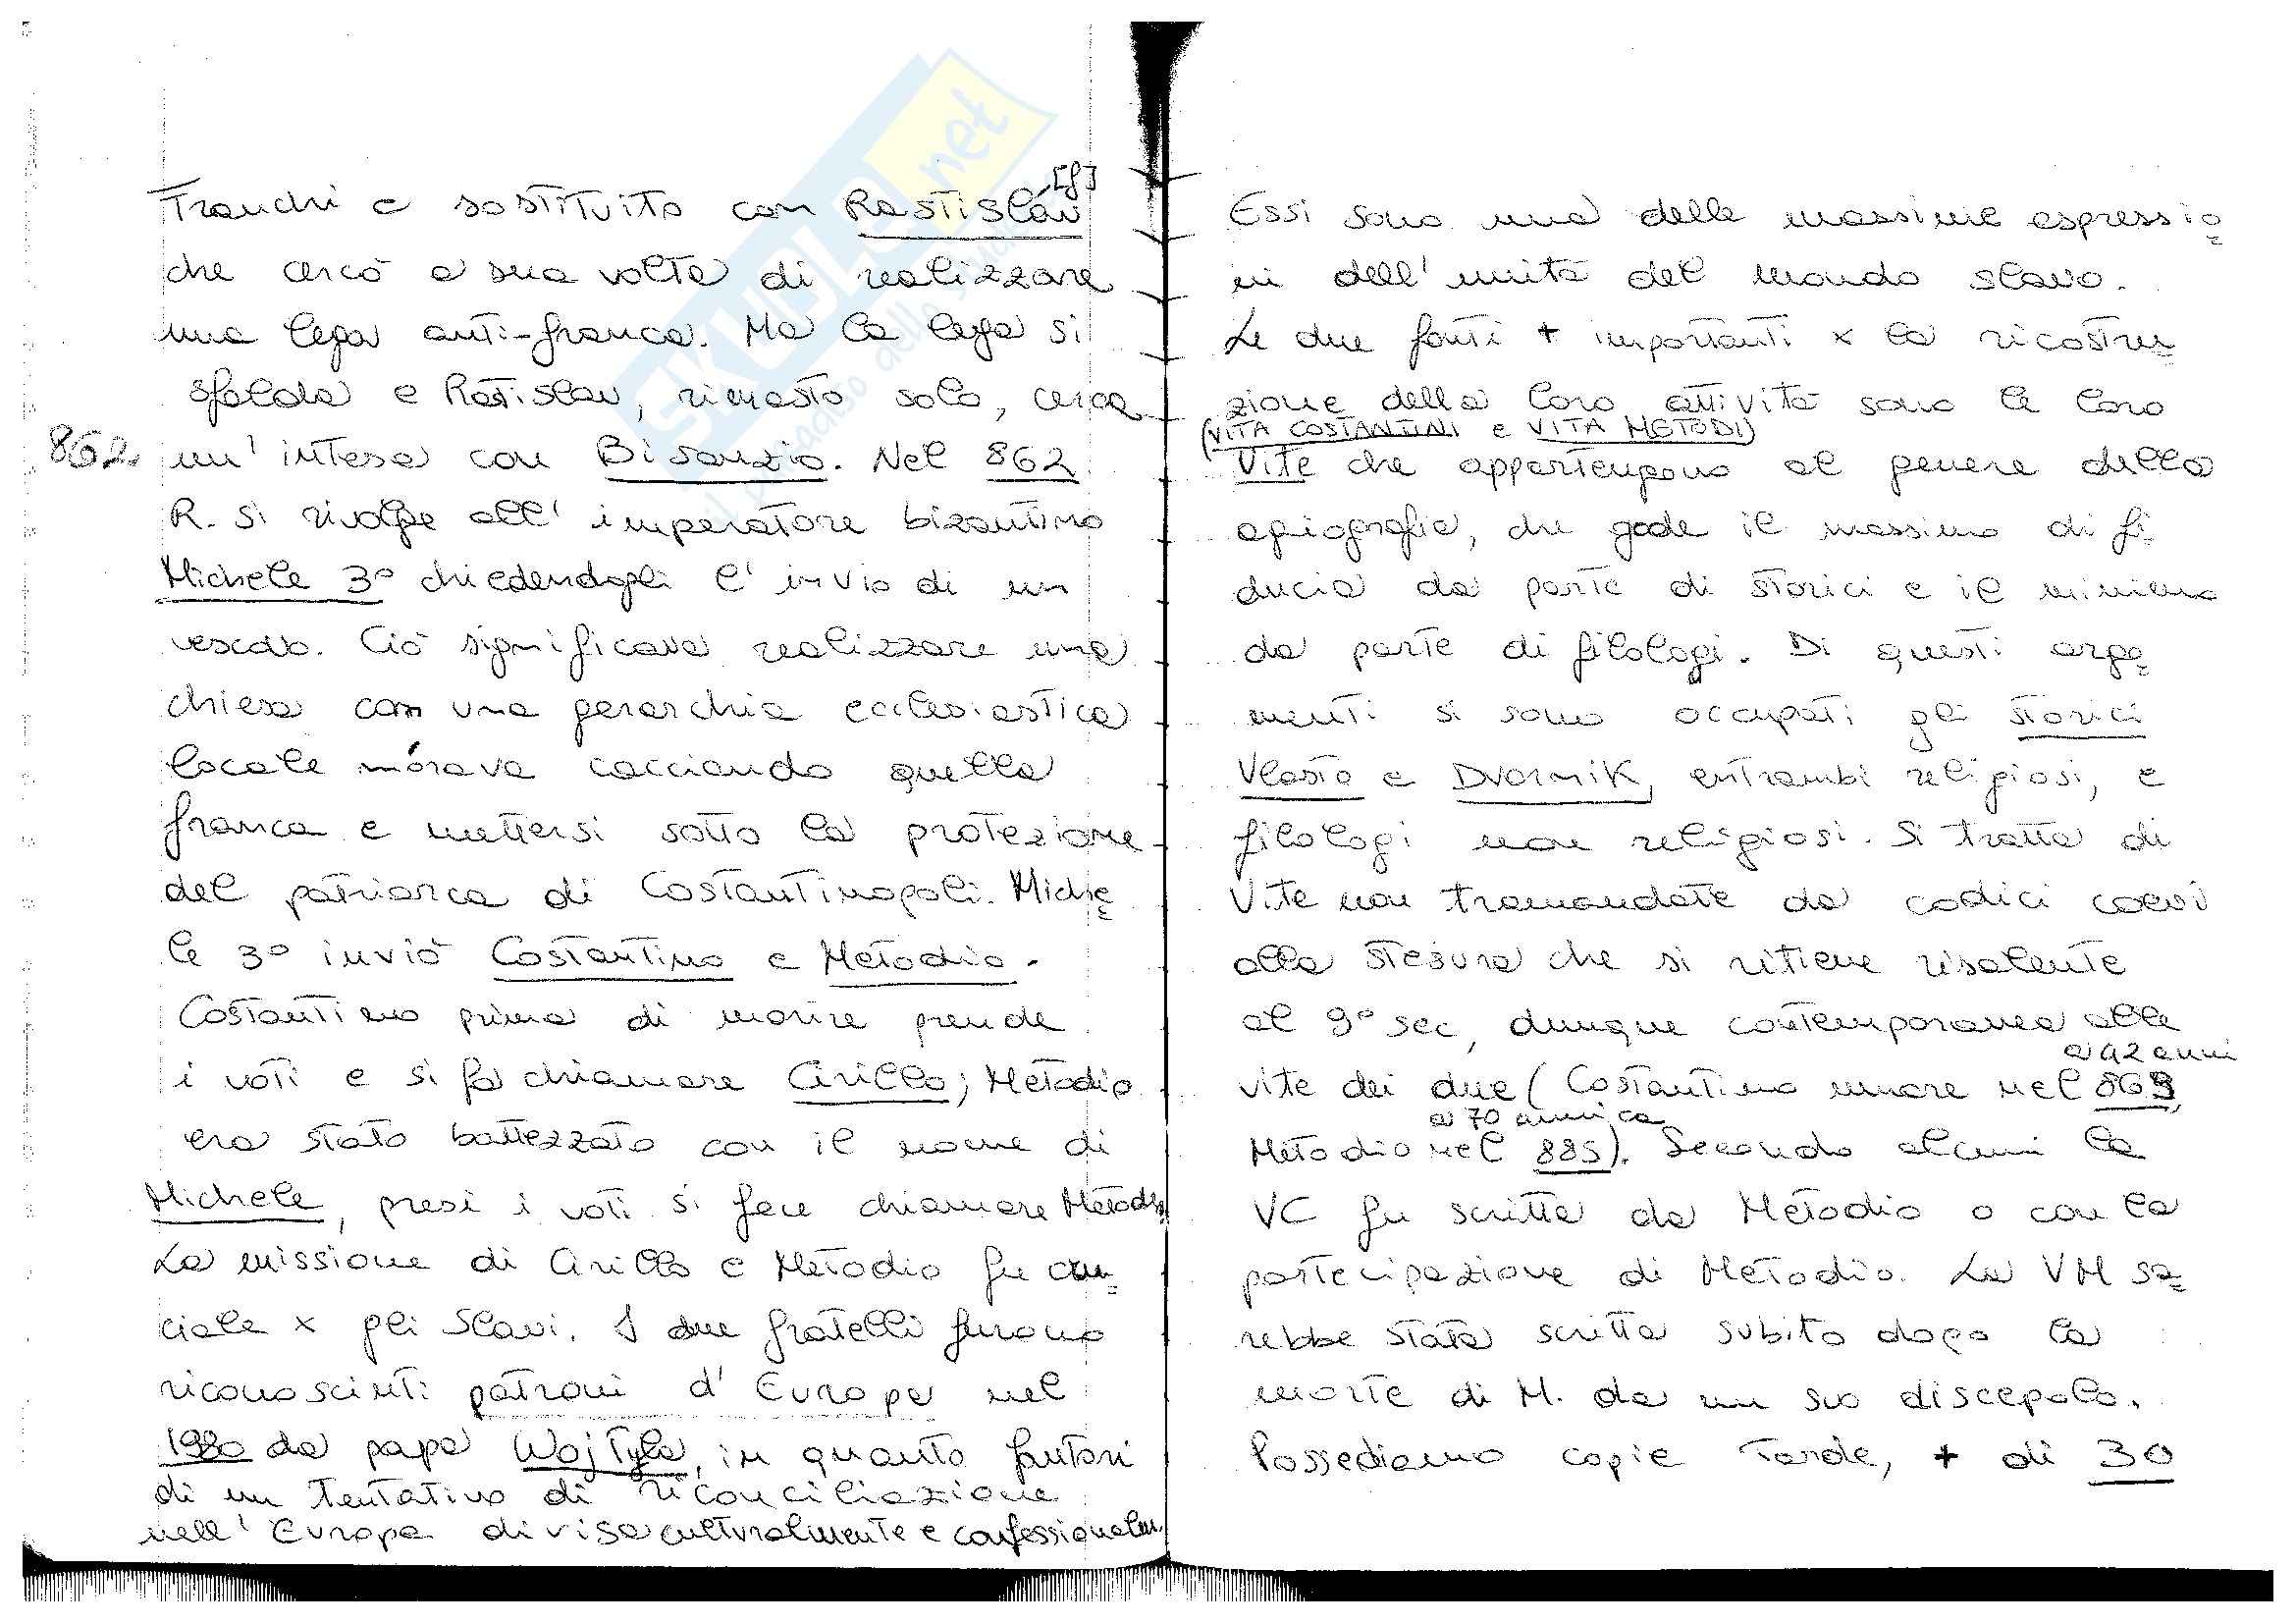 Franchi e sostituito con Rastislav [f]
che cercò a sua volta di realizzare
una lega anti-franca. Ma la lega si
sfalda e Ratislav, rimasto solo, cerca
862. un' intesa con Bisanzio. Nel 862
R. si rivolge all' imperatore bizantino
Michele 3° chiedendogli l' invio di un
vescovo. Ciò significava realizzare una
chiesa con una gerarchia ecclesiastica
locale mórava cacciando quella
franca e mettersi sotto la protezione
del patriarca di Costantinopoli. Miche=
le 3° inviò Costantino e Metodio.
Costantino prima di morire prende
i voti e si fa chiamare Cirillo; Metodio
era stato battezzato con il nome di
Michele, presi i voti si fece chiamare Metodio,
La missione di Cirillo e Metodio fu cru=
ciale x gli Slavi. I due fratelli furono
riconosciuti patroni d' Europa nel
1980 da papa Wojtyla, in quanto fautori
di un tentativo di riconciliazione
nell' Europa divisa culturalmente e confessionalm.
Essi sono una delle massime espressio=
ni dell' unità del mondo slavo.
Le due fonti + importanti x la ricostru=
zione della loro attività sono le loro
(VITA COSTANTINI e VITA METODI)
Vite che appartengono al genere della
agiografia, che gode il massimo di fi
ducia da parte di storici e il minimo
da parte di filologi. Di questi argo=
menti si sono occupati gli storici
Vlasto e Dvornik, entrambi religiosi, e
filologi non religiosi. Si tratta di
Vite non tramandate da codici coevi
alla stesura che si ritiene risalente
al 9° sec, dunque contemporanea alle
a 42 anni
vite dei due (Costantino muore nel 869,
a 70 anni ca
Metodio nel 885). Secondo alcuni la
VC fu scritta da Metodio o con la
partecipazione di Metodio. La VM sa=
rebbe stata scritta subito dopo la
morte di M. da un suo discepolo.
Possediamo copie tarde, + di 30